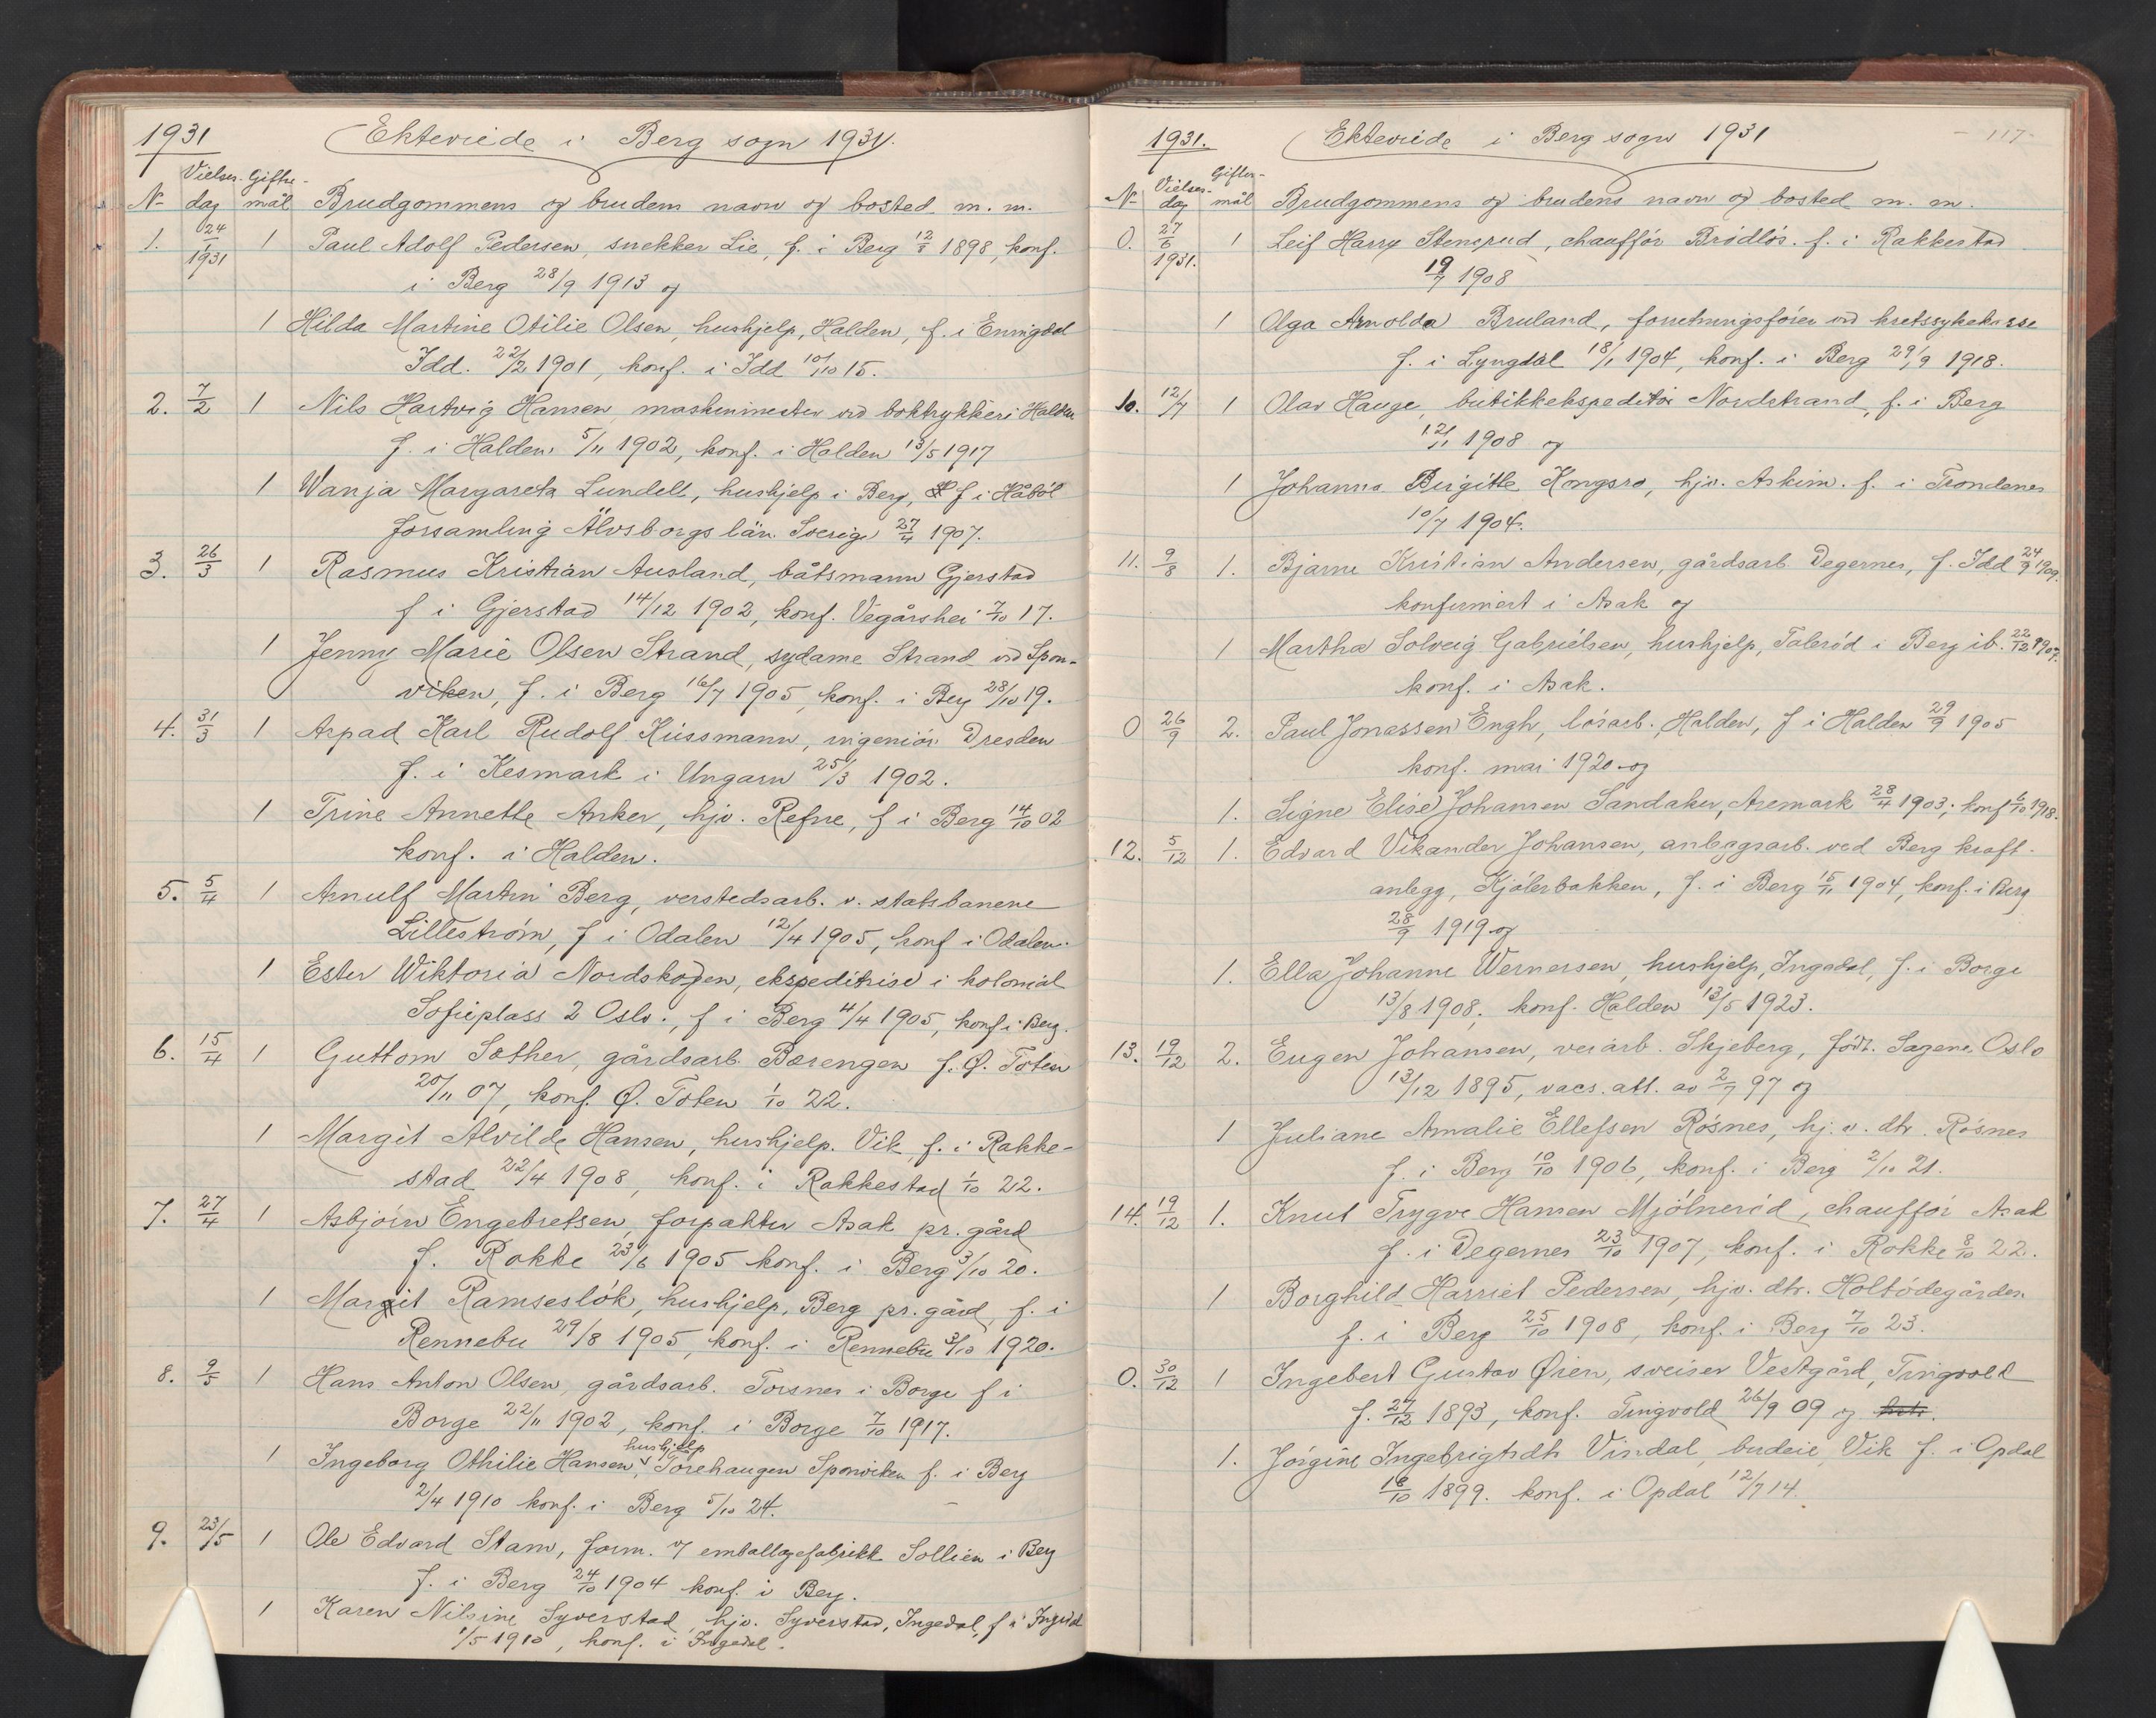 1931 Ekteviede i Berg sogn 1931.
Vielses- Gifte-
No dag mål Brudgommens og brudens navn og bosted m. m.
1. 24/1 1931 1 Paul Adolf Pedersen, snekker Lie, f. i Berg 12/8 1898, konf.
i Berg 28/9 1913 og
1 Hilda Martine Otilie Olsen, hushjelp, Halden, f. i Enningdal
Idd. 22/2 1901, konf. i Idd 10/10 15.
2. 7/2 1 Nils Hartvig Hansen, maskinmester ved boktrykkeri Halden
f. i Halden 5/11 1902, konf. i Halden 13/5 1917
1 Wanja Margareta Lundell, hushjelp i Berg, f i Håböl
forsamling Älvsborgs län. Sverige 27/4 1907.
3. 26/3 1 Rasmus Kristian Ausland, båtsmann Gjerstad
f i Gjerstad 14/12 1902, konf. Vegårshei 7/10 17.
1 Jenny Marie Olsen Strand, sydame Strand ved Spon-
viken, f. i Berg 16/7 1905, konf. i Berg 28/10 19.
4. 31/3 1 Arpad Karl Rudolf Küssmann, ingeniør Dresden
f. i Kesmark i Ungarn 25/3 1902.
1 Trine Annette Anker, hjv. Refne, f i Berg 14/10 02
konf. i Halden.
5. 5/4 1 Arnulf Martin Berg, verstedsarb. v. statsbanene
Lillestrøm, f i Odalen 12/4 1905, konf i Odalen.
1 Ester Wiktoria Nordskogen, ekspeditrise i kolonial
Sofieplass 2 Oslo., f i Berg 4/4 1905, konf i Berg.
6. 15/4 1 Guttorm Sæther, gårdsarb. Børengen f. Ø. Toten
20/11 07, konf. Ø. Toten 1/10 22.
1 Margit Alvilde Hansen, hushjelp. Vik, f. i Rakke-
stad 22/4 1908, konf. i Rakkestad 1/10 22.
7. 27/4 1 Asbjørn Engebretsen, forpakter Asak pr. gård
f. Rokke 23/6 1905 konf. i Berg 3/10 20.
1 Margit Ramsesløk, hushjelp, Berg pr. gård, f. i
Rennebu 29/8 1905, konf. i Rennebu 3/10 1920.
8. 9/5 1 Hans Anton Olsen, gårdsarb. Torsnes i Borge f i
Borge 22/11 1902, konf. i Borge 7/10 1917.
hushjelp
1 Ingeborg Othilie Hansen, Torehaugen Sponviken f. i Berg
2/4 1910 konf. i Berg 5/10 24.
9. 23/5 1 Ole Edvard Stam, form. v/ emballagefabrikk Sollien i Berg
f. i Berg 24/10 1904 konf. i Berg.
1 Karen Nilsine Syverstad, hjv. Syverstad, Ingedal, f i Ingedal
1/5 1910, konf. i Ingedal.
1931. Ekteviede i Berg sogn 1931 117
Vielses- Gifter-
No dag mål Brudgommens og brudens navn og bosted m. m.
0. 27/6 1931. 1 Leif Harry Stensrud, chauffør Brødløs. f. i Rakkestad
19/7 1908
1 Olga Arnolda Bruland, forretningsfører ved kretssykekasse
f. i Lyngdal 18/1 1904, konf. i Berg 29/9 1918.
10. 12/7 1 Olav Hauge, butikkekspeditør Nordstrand, f. i Berg
12/11 1908 og
1 Johanna Birgitte Kongsro, hjv. Askim. f. i Trondenes
10/7 1904.
11. 9/8 1. Bjarne Kristian Andersen, gårdsarb. Degernes, f. Idd 24/9 1909.
konfirmert i Asak og
1 Martha Solveig Gabrielsen, hushjelp, Talerød i Berg ib. 22/12 1907.
konf. i Asak.
0 26/9 2. Paul Jonassen Engh, løsarb., Halden, f i Halden 29/9 1905
konf. mai 1920 og
1. Signe Elise Johansen Sandaker, Aremark 28/4 1903; konf 6/10 1918.
12. 5/12 1. Edvard Vikander Johansen, anleggsarb. ved Berg kraft-
anlegg, Kjølerbakken, f. i Berg 15/11 1904, konf. i Berg
28/9 1919 og
1. Ella Johanne Wernersen, hushjelp, Ingedal, f. i Borge
13/8 1908, konf. Halden 13/5 1923.
13. 19/12 2. Eugen Johansen, veiarb. Skjeberg, født. Sagene Oslo
13/12 1895, vacs. att. av 2/7 97 og
1 Juliane Amalie Ellefsen Røsnes, hj. v. dtr. Røsnes
f. i Berg 10/10 1906, konf. i Berg 2/10 21.
14. 19/12 1. Knut Trygve Hansen Mjølnerød, chauffør Asak
f. i Degernes 23/10 1907, konf. i Rokke 8/10 22.
1 Borghild Harriet Pedersen, hjv. dtr. Holtødegården
f. i Berg 25/10 1908, konf. i Berg 7/10 23.
0. 30/12 1 Ingebert Gustav Øien, sveiser Vestgård, Tingvold
f. 27/12 1893, konf. Tingvold 26/9 09 og
1. Jørgine Ingebrigtsdtr Vindal, budeie, Vik f. i Opdal
16/10 1899. konf. i Opdal 12/7 14.